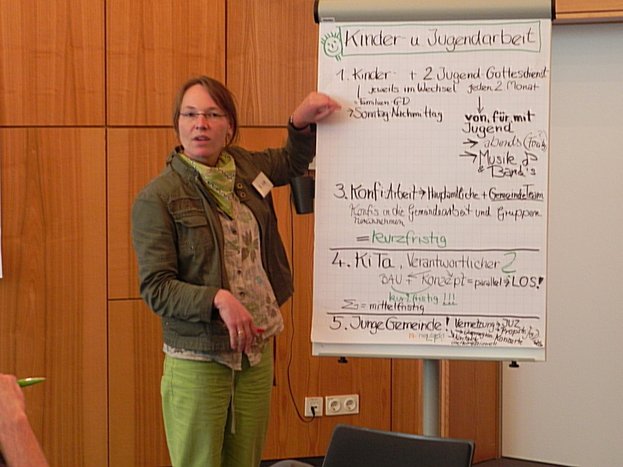 Kinder- u Jugendarbeit
1. Kinder- + 2 Jugend-Gottesdienst
jeweils im Wechsel jeden 2 Monat
Familien-GD
→ Sonntag Nachmittag
von, für, mit
Jugend
→ abends
→ Musik
& Band's
3. Konfi-Arbeit → Hauptamtliche + GemeindeTeam
Konfis in die Gemeindearbeit und Gruppen
= kurzfristig
4. KiTa, Verantwortlicher 2
BAU + Konzept = parallel → LOS!
kurzfristig !!!
Σ = mittelfristig
5. Junge Gemeinde! Vernetzung → JUZ
Konzerte